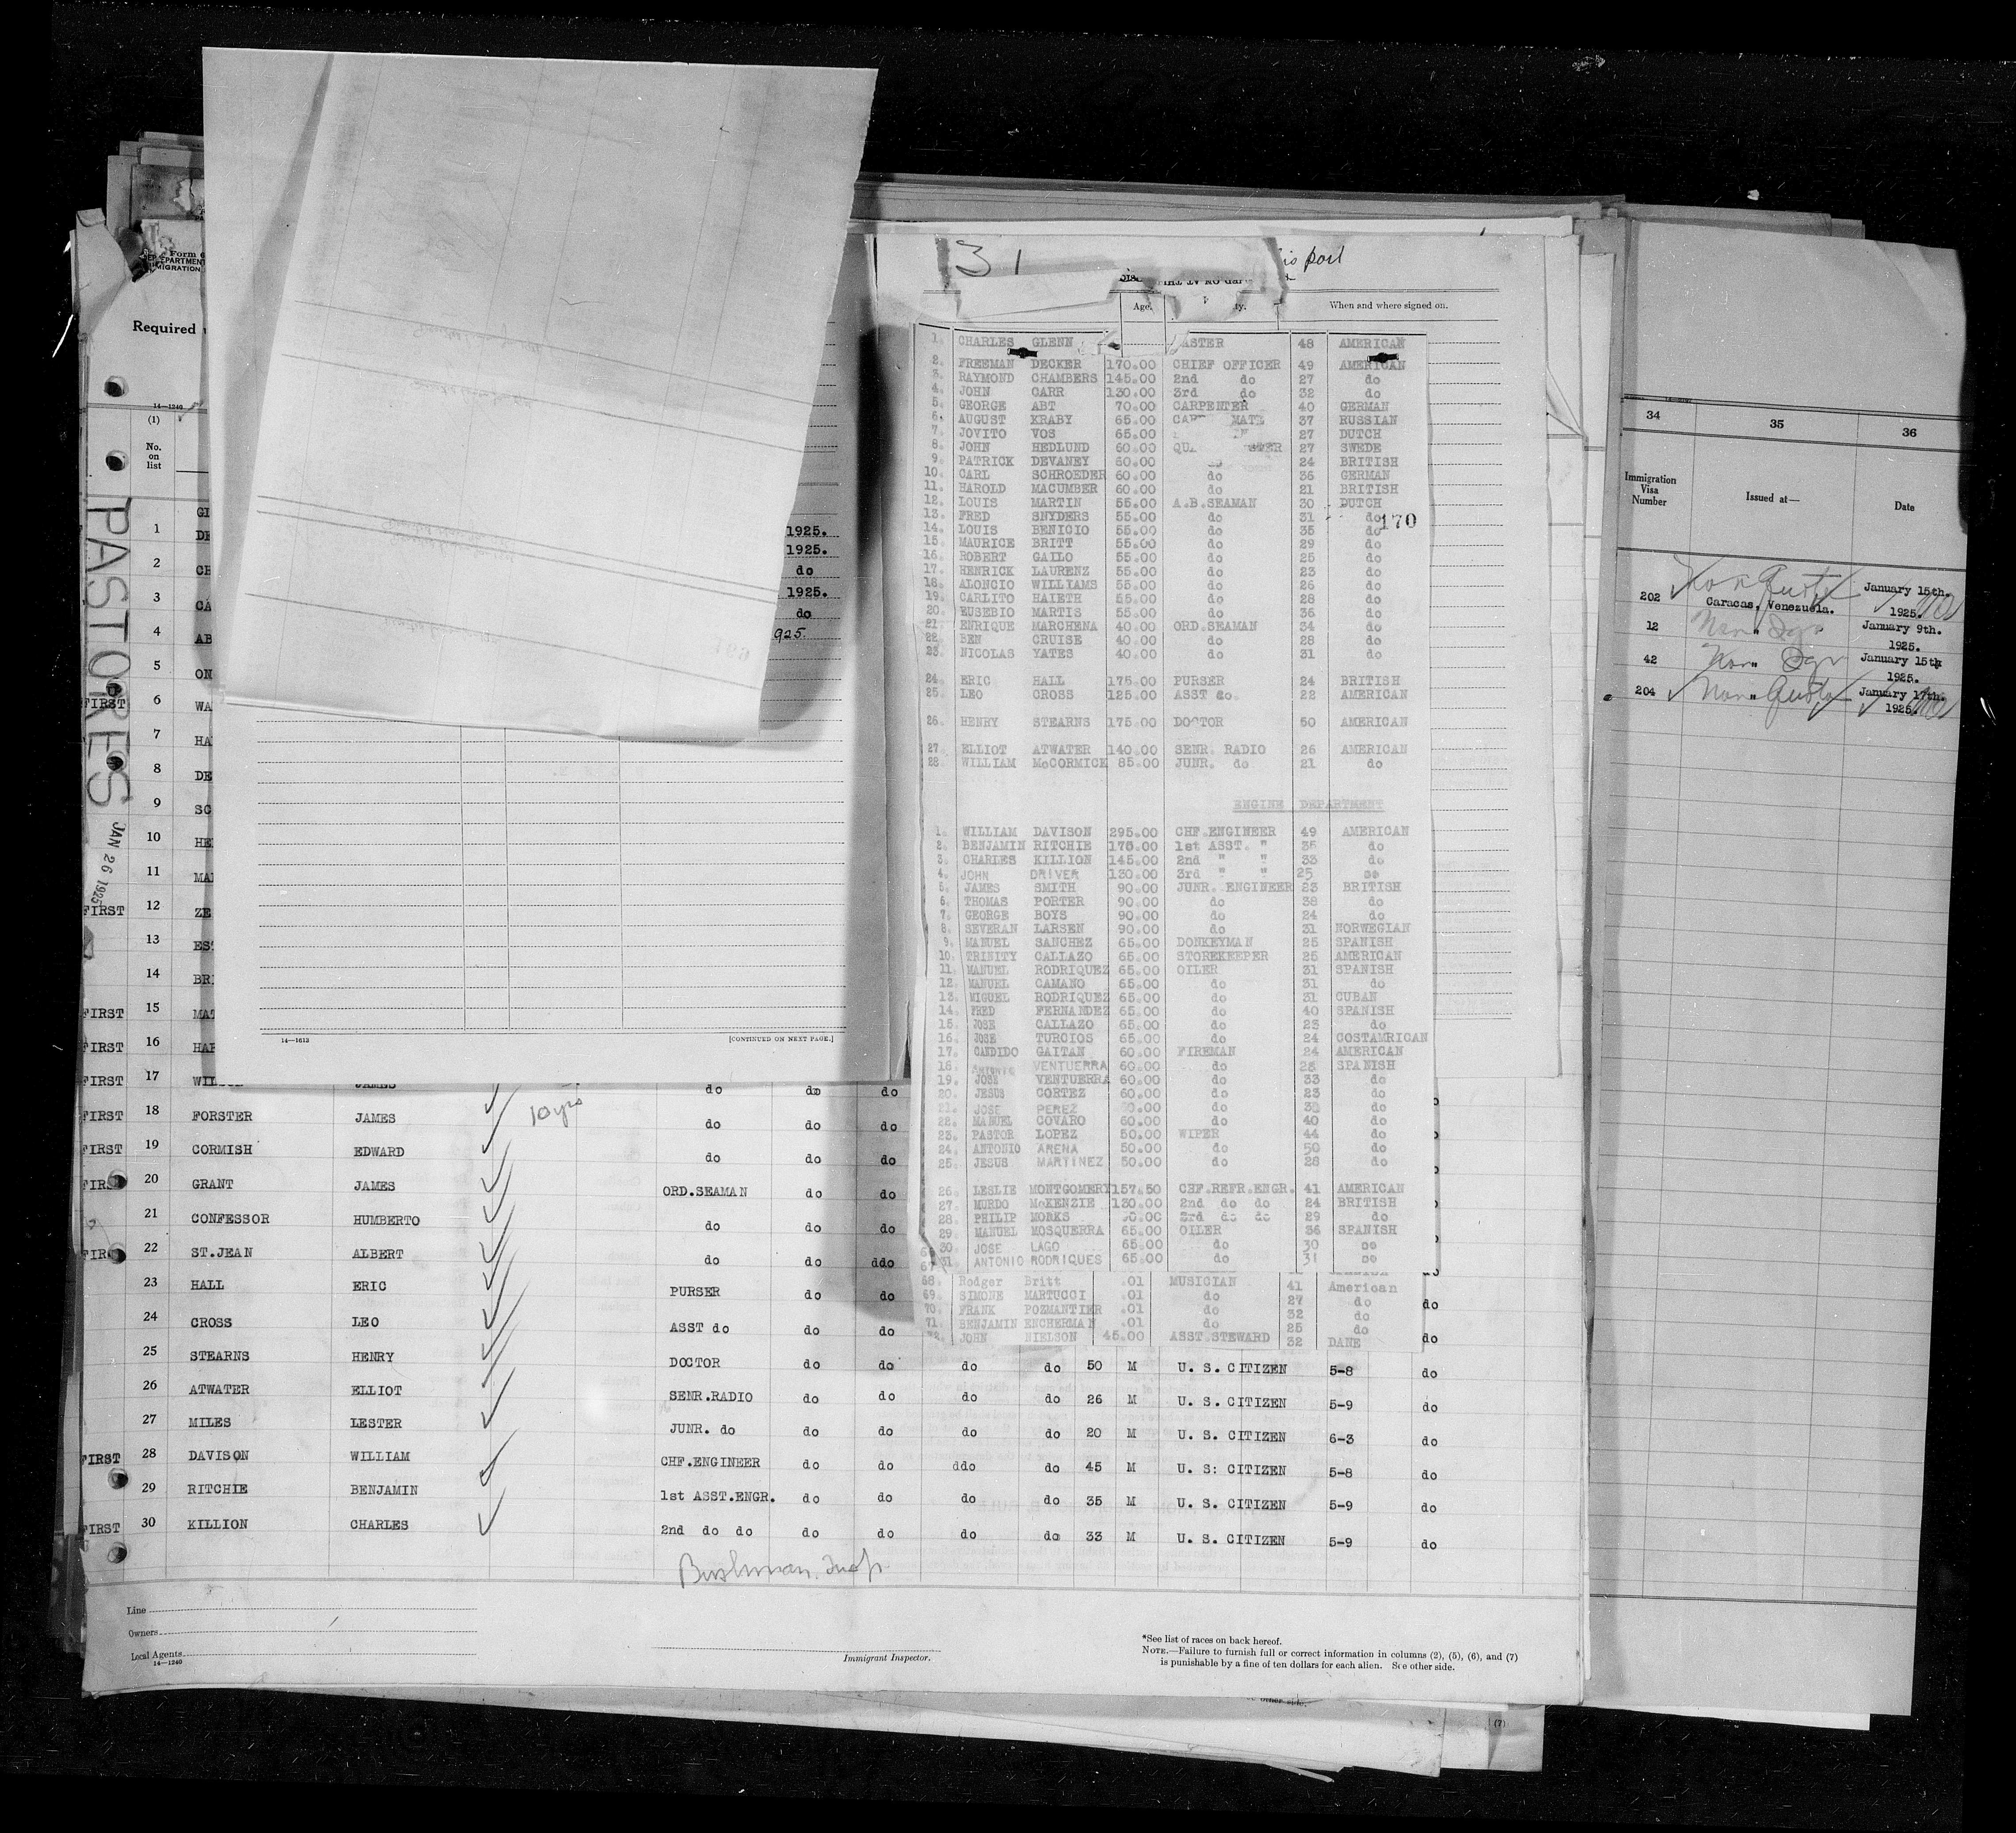 31
is port
Age.
ty.
When and where signed on.
1. CHARLES GLENN ASTER 48 AMERICAN
2. FREEMAN DECKER 170.00 CHIEF OFFICER 49 AMERICAN
3. RAYMOND CHAMBERS 145.00 2nd do 27 do
4. JOHN CARR 130.00 3rd do 32 do
5. GEORGE ABT 70.00 CARPENTER 40 GERMAN
6. AUGUST KRABY 65.00 CAR MATE 37 RUSSIAN
7. JOVITO VOS 65.00 27 DUTCH
8. JOHN HEDLUND 60.00 QUA STER 27 SWEDE
9. PATRICK DEVANEY 60.00 do 24 BRITISH
10. CARL SCHROEDER 60.00 do 36 GERMAN
11. HAROLD MACUMBER 60.00 do 21 BRITISH
12. LOUIS MARTIN 55.00 A.B.SEAMAN 30 DUTCH
13. FRED SNYDERS 55.00 do 31 do 170
14. LOUIS BENICIO 55.00 do 35 do
15. MAURICE BRITT 55.00 do 29 do
16. ROBERT GAILO 55.00 do 25 do
17. HENRICK LAURENZ 55.00 do 23 do
18. ALONCIO WILLIAMS 55.00 do 26 do
19. CARLITO HAIETH 55.00 do 28 do
20. EUSEBIO MARTIS 55.00 do 36 do
21. ENRIQUE MARCHENA 40.00 ORD.SEAMAN 34 do
22. BEN CRUISE 40.00 do 28 do
23. NICOLAS YATES 40.00 do 31 do
24. ERIC HALL 175.00 PURSER 24 BRITISH
25. LEO CROSS 125.00 ASST do. 22 AMERICAN
26. HENRY STEARNS 175.00 DOCTOR 50 AMERICAN
27. ELLIOT ATWATER 140.00 SENR. RADIO 26 AMERICAN
28. WILLIAM McCORMICK 85.00 JUNR. do 21 do
ENGINE DEPARTMENT
1. WILLIAM DAVISON 295.00 CHF.ENGINEER 49 AMERICAN
2. BENJAMIN RITCHIE 170.00 1st ASST. " 35 do
3. CHARLES KILLION 145.00 2nd " " 33 do
4. JOHN DRIVER 130.00 3rd " " 25 do
5. JAMES SMITH 90.00 JUNR. ENGINEER 23 BRITISH
6. THOMAS PORTER 90.00 do 38 do
7. GEORGE BOYS 90.00 do 24 do
8. SEVERAN LARSEN 90.00 do 31 NORWEGIAN
9. MANUEL SANCHEZ 65.00 DONKEYMAN 25 SPANISH
10. TRINITY CALLAZO 65.00 STOREKEEPER 25 AMERICAN
11. MANUEL RODRIQUEZ 65.00 OILER 31 SPANISH
12. MANUEL CAMANO 65.00 do 31 do
13. MIGUEL RODRIQUEZ 65.00 do 31 CUBAN
14. FRED FERNANDEZ 65.00 do 40 SPANISH
15. JOSE CALLAZO 65.00 do 25 do
16. JOSE TURCIOS 65.00 do 24 COSTARICAN
17. CANDIDO GAITAN 60.00 FIREMAN 24 AMERICAN
18. ANTONIO VENTUERRA 60.00 do 25 SPANISH
19. JOSE VENTUERRA 60.00 do 33 do
20. JESUS CORTEZ 60.00 do 23 do
21. JOSE PEREZ 0.00 do 35 do
22. MANUEL COVARO 60.00 do 40 do
23. PASTOR LOPEZ 50.00 WIPER 44 do
24. ANTONIO ARENA 50.00 do 50 do
25. JESUS MARTINEZ 50.00 do 28 do
26. LESLIE MONTGOMERY 157.50 CHF.REFR.ENGR. 41 AMERICAN
27. MURDO McKENZIE 130.00 2nd do do 24 BRITISH
28. PHILIP MONKS 0.00 3rd do do 29 do
29. MANUEL MOSQUERRA 65.00 OILER 36 SPANISH
30. JOSE LAGO 65.00 do 30 do
31. ANTONIO RODRIQUES 65.00 do 31 do
68. Rodger Britt .01 MUSICIAN 41 American
69. SIMONE MARTUCCI .01 do 27 do
70. FRANK POZMANTIER .01 do 32 do
71. BENJAMIN ENCHERMAN .01 do 25 do
72. JOHN NIELSON 45.00 ASST.STEWARD 32 DANE
Form
DEPARTMENT
IMMIGRATION
Required
14—1240
(1)
No. on list
PASTORES
JAN 26 1925
GL
1 DE 1925.
1925.
2 CH do
3 CA 1925.
do
4 AB 925.
5 ON
FIRST 6 WA
7 HA
8 DE
9 SC
10 HE
11 MA
FIRST 12 ZE
13 ES
14 BR
FIRST 15 MA
FIRST 16 HA
14—1613
[CONTINUED ON NEXT PAGE.]
FIRST 17 WIL JAMES do do do
FIRST 18 FORSTER JAMES 10 yrs do do do
FIRST 19 CORMISH EDWARD do do do
FIRS 20 GRANT JAMES ORD.SEAMAN do do
21 CONFESSOR HUMBERTO do do do
FIRS 22 ST.JEAN ALBERT do do ddo
23 HALL ERIC PURSER do do do
24 CROSS LEO ASST do do do do
25 STEARNS HENRY DOCTOR do do do do 50 M U. S. CITIZEN 5-8 do
26 ATWATER ELLIOT SENR.RADIO do do do do 26 M U. S. CITIZEN 5-9 do
27 MILES LESTER JUNR. do do do do do 20 M U. S. CITIZEN 6-3 do
FIRST 28 DAVISON WILLIAM CHF.ENGINEER do do ddo do 45 M U. S: CITIZEN 5-8 do
29 RITCHIE BENJAMIN 1st ASST.ENGR. do do do do 35 M U. S. CITIZEN 5-9 do
FIRST 30 KILLION CHARLES 2nd do do do do do do 33 M U. S. CITIZEN 5-9 do
Bushman. Insp.
Line
Owners
Local Agents
14—1240
Immigrant Inspector.
*See list of races on back hereof.
NOTE.—Failure to furnish full or correct information in columns (2), (5), (6), and (7)
is punishable by a fine of ten dollars for each alien. See other side.
(7)
34 35 36
Immigration Visa Number
Issued at—
Date
202 Non Quota Caracas, Venezuela. January 15th. 1925.
12 Non " January 9th. 1925.
42 Non " January 15th 1925.
204 Non " Quota January 17th. 1925.